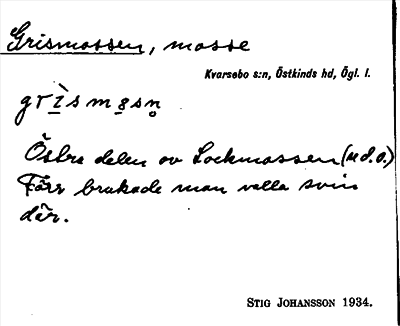 Grismossen, mosse
Kvarsebo s:n, Östkinds hd, Ögl. l.
grìsmosn̥
Östra delen av Lockmossen (u.d.o.)
Förr brukade man valla svin
där.
STIG JOHANSSON 1934.